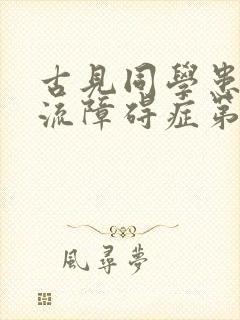 古見同學患
流障碍症第
風尋夢